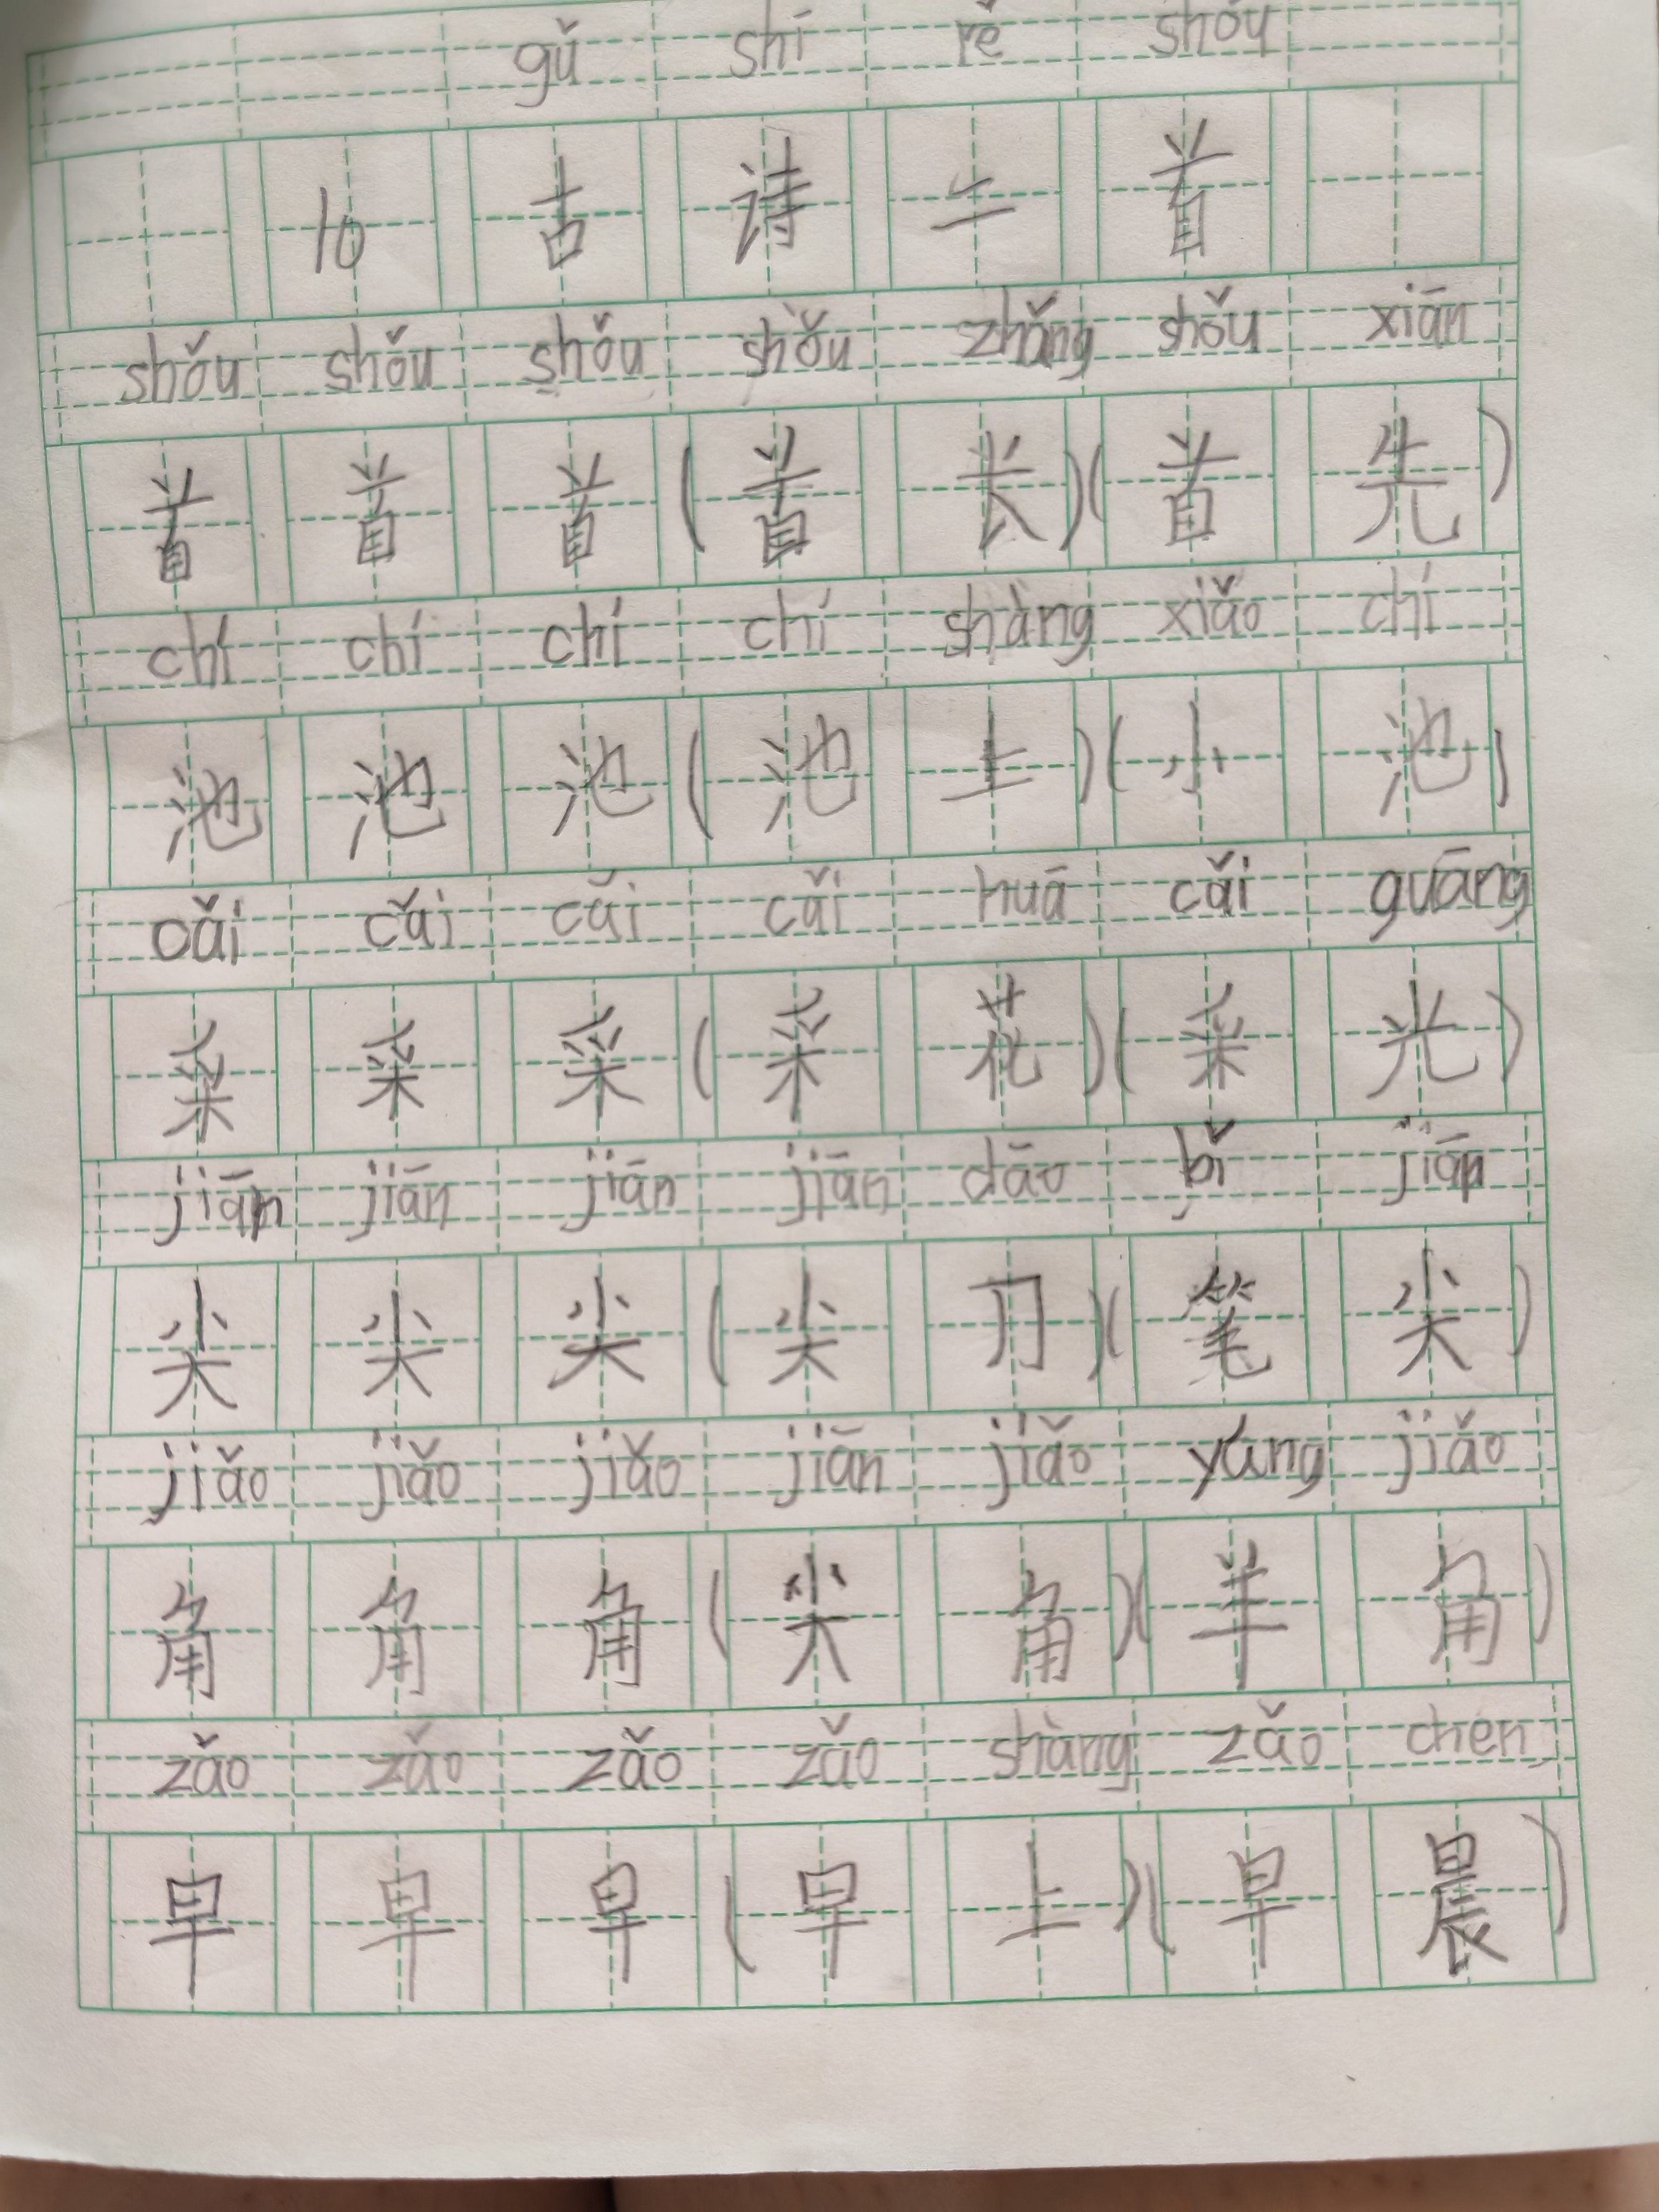 gǔ shī shǒu
10 古 诗 二 首
shǒu shǒu shǒu shǒu zhǎng shǒu xiān
首 首 首 (首 长)(首 先)
chí chí chí chí shàng xiǎo chí
池 池 池 (池 上)(小 池)
cǎi cǎi cǎi cǎi huā cǎi guāng
采 采 采 (采 花)(采 光)
jiān jiān jiān jiān dāo bǐ jiān
尖 尖 尖 (尖 刀)(笔 尖)
jiǎo jiǎo jiǎo jiān jiǎo yáng jiǎo
角 角 角 (尖 角)(羊 角)
zǎo zǎo zǎo zǎo shàng zǎo chén
早 早 早 (早 上)(早 晨)